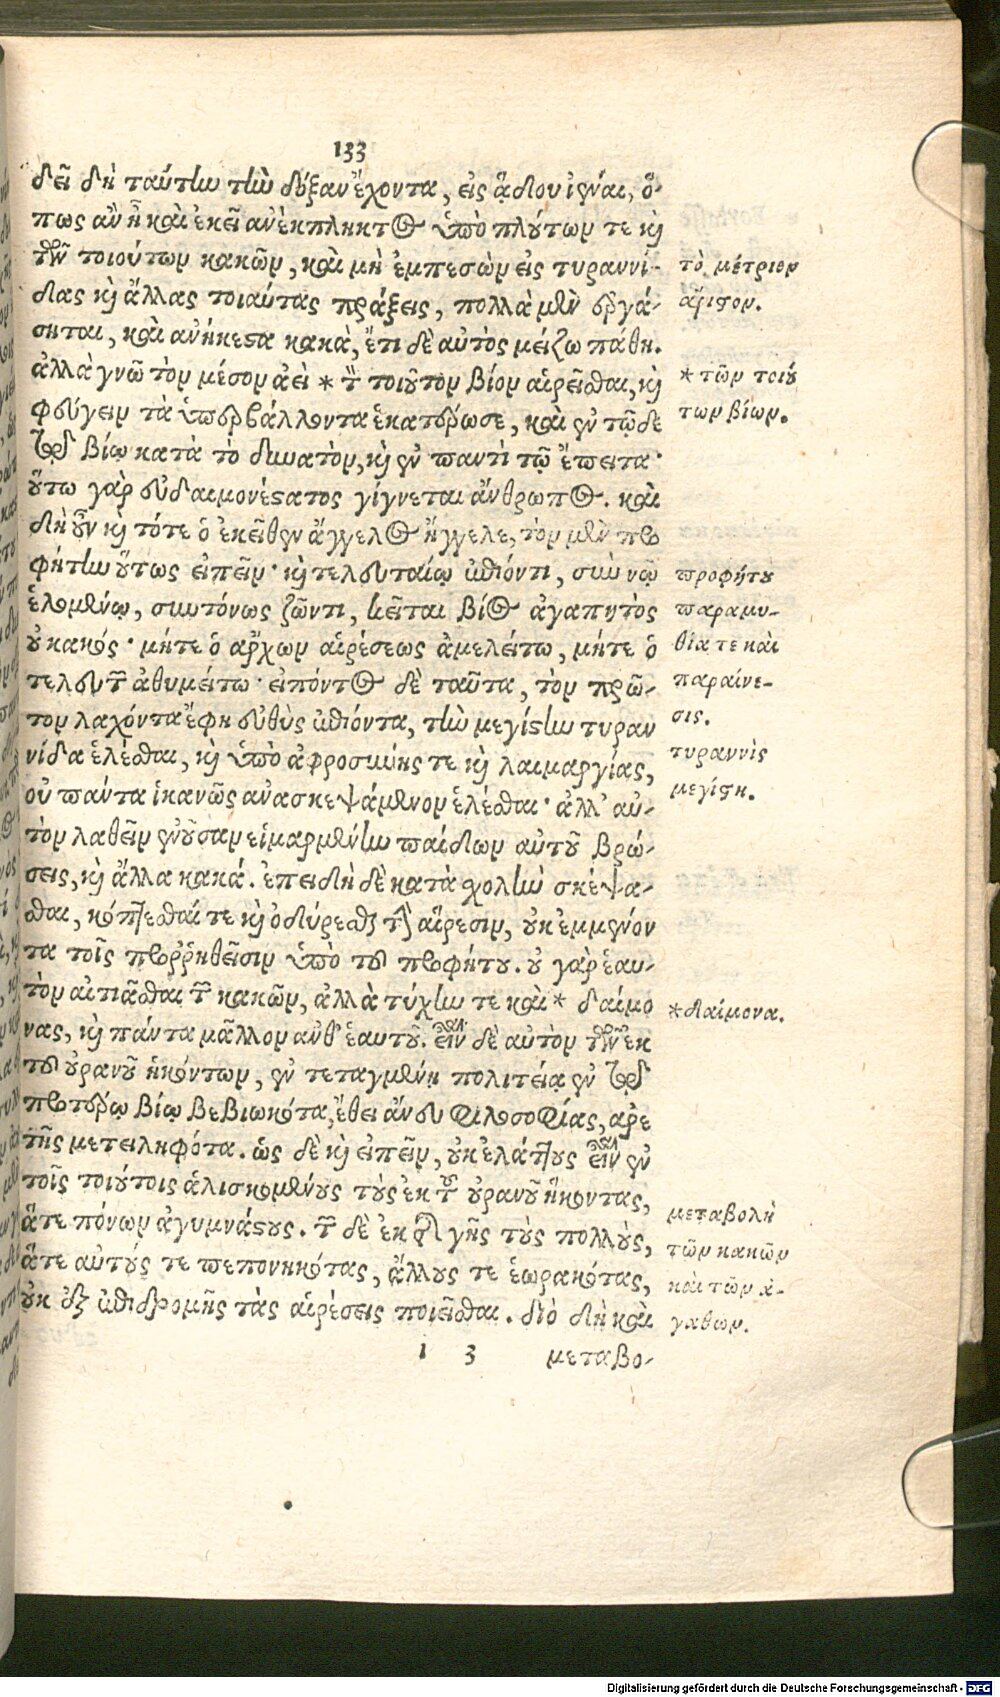 133
δεῖ δὴ ταύτην τὴν δόξαν ἔχοντα, εἰς ᾅδου ἰέναι, ὅ-
πως ἂν ᾖ καὶ ἐκεῖ ἀνέκπληκτος ὑπὸ πλούτων τε καὶ
τῶν τοιούτων κακῶν, καὶ μὴ ἐμπεσὼν εἰς τυραννί-
δας καὶ ἄλλας τοιαύτας πράξεις, πολλὰ μὲν ἐργά-
σηται, καὶ ἀνήκεστα κακὰ, ἔτι δὲ αὐτὸς μείζω πάθη.
ἀλλὰ γνῶ τὸν μέσον ἀεὶ * τὸν τοιοῦτον βίον αἱρεῖσθαι, καὶ
φεύγειν τὰ ὑπερβάλλοντα ἑκατέρωσε, καὶ ἐν τῷδε
τῷ βίῳ κατὰ τὸ δυνατὸν, καὶ ἐν παντὶ τῷ ἔπειτα·
οὕτω γὰρ εὐδαιμονέστατος γίγνεται ἄνθρωπος. καὶ
δὴ οὖν καὶ τότε ὁ ἐκεῖθεν ἄγγελος ἤγγελε, τὸν μὲν προ
φήτην οὕτως εἰπεῖν· καὶ τελευταίῳ ἐπιόντι, σὺν νῷ
ἑλομένῳ, συντόνως ζῶντι, κεῖται βίος ἀγαπητὸς
οὐ κακός· μήτε ὁ ἄρχων αἱρέσεως ἀμελείτω, μήτε ὁ
τελευτῶν ἀθυμείτω· εἰπόντος δὲ ταῦτα, τὸν πρῶ-
τον λαχόντα ἔφη εὐθὺς ἐπιόντα, τὴν μεγίστην τυραν
νίδα ἑλέσθαι, καὶ ὑπὸ ἀφροσύνης τε καὶ λαιμαργίας,
οὐ πάντα ἱκανῶς ἀνασκεψάμενον ἑλέσθαι· ἀλλ' αὐ-
τὸν λαθεῖν ἐνοῦσαν εἱμαρμένην παίδων αὐτοῦ βρώ-
σεις, καὶ ἄλλα κακά. ἐπειδὴ δὲ κατὰ σχολὴν σκέψα-
σθαι, κόπτεσθαί τε καὶ ὀδύρεσθαι τὴν αἵρεσιν, οὐκ ἐμμένον
τα τοῖς προῤῥηθεῖσιν ὑπὸ τοῦ προφήτου. οὐ γὰρ ἑαυ-
τὸν αἰτιᾶσθαι τῶν κακῶν, ἀλλὰ τύχην τε καὶ * δαίμο
νας, καὶ πάντα μᾶλλον ἀνθ' ἑαυτοῦ. εἶναι δὲ αὐτὸν τῶν ἐκ
τοῦ οὐρανοῦ ἡκόντων, ἐν τεταγμένῃ πολιτείᾳ ἐν τῷ
προτέρῳ βίῳ βεβιωκότα, ἔθει ἄνευ φιλοσοφίας, ἀρε
τῆς μετειληφότα. ὡς δὲ καὶ εἰπεῖν, οὐκ ἐλάττους εἶναι ἐν
τοῖς τοιούτοις ἁλισκομένους τοὺς ἐκ τοῦ οὐρανοῦ ἥκοντας,
ἅτε πόνων ἀγυμνάστους. τῶν δὲ ἐκ τῆς γῆς τοὺς πολλοὺς,
ἅτε αὐτούς τε πεπονηκότας, ἄλλους τε ἑωρακότας,
οὐκ ἐξ ἐπιδρομῆς τὰς αἱρέσεις ποιεῖσθαι. διὸ δὴ καὶ
I 3 μεταβο-
τὸ μέτριον
ἄριστον.
* τῶν τοιού
των βίων.
προφήτου
παραμυ-
θία τε καὶ
παραίνε-
σις.
τυραννὶς
μεγίστη.
* δαίμονα.
μεταβολὴ
τῶν κακῶν
καὶ τῶν ἀ-
γαθων.
Digitalisierung gefördert durch die Deutsche Forschungsgemeinschaft - DFG